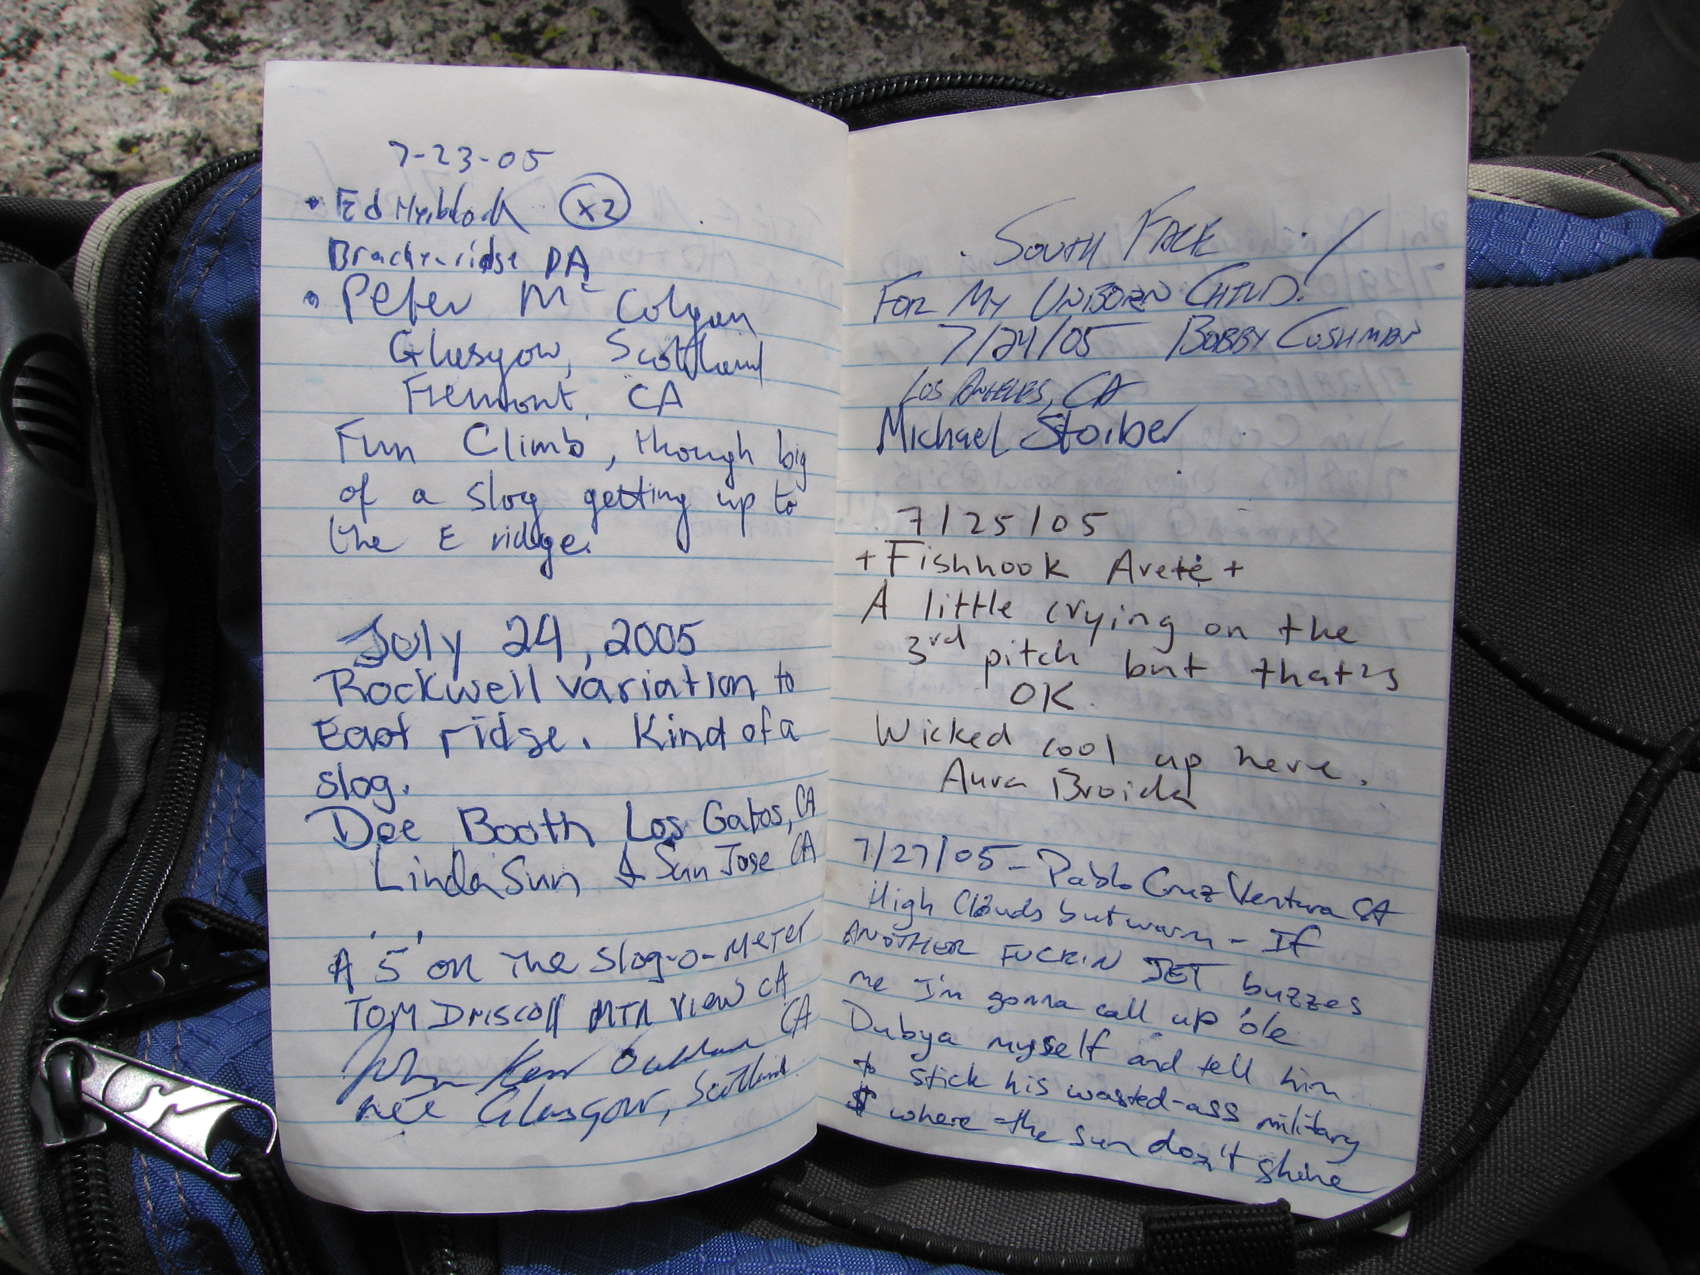 7-23-05
Ed (x2)
Brackenridge PA
Peter Mc Colgan
Glasgow, Scotland
Fremont, CA
Fun Climb, though big
of a slog getting up to
the E ridge.
July 24, 2005
Rockwell variation to
East ridge. Kind of a
slog.
Dee Booth Los Gatos, CA
Linda Sun & San Jose CA
A '5' on the slog-o-meter
TOM DRISCOLL MTN VIEW CA
John Kerr CA
née Glasgow, Scotland.
SOUTH FACE
FOR MY UNBORN CHILD!
7/24/05 BOBBY CUSHMAN
LOS ANGELES, CA
Michael Stoiber
7/25/05
+ Fishhook Arete +
A little crying on the
3rd pitch but that's
OK.
Wicked cool up here.
Aura Broida
7/27/05 - Pablo Cruz Ventura CA
High Clouds but warm - If
ANOTHER FUCKIN JET buzzes
me I'm gonna call up 'ole
Dubya myself and tell him
to stick his wasted-ass military
$ where the sun don't shine